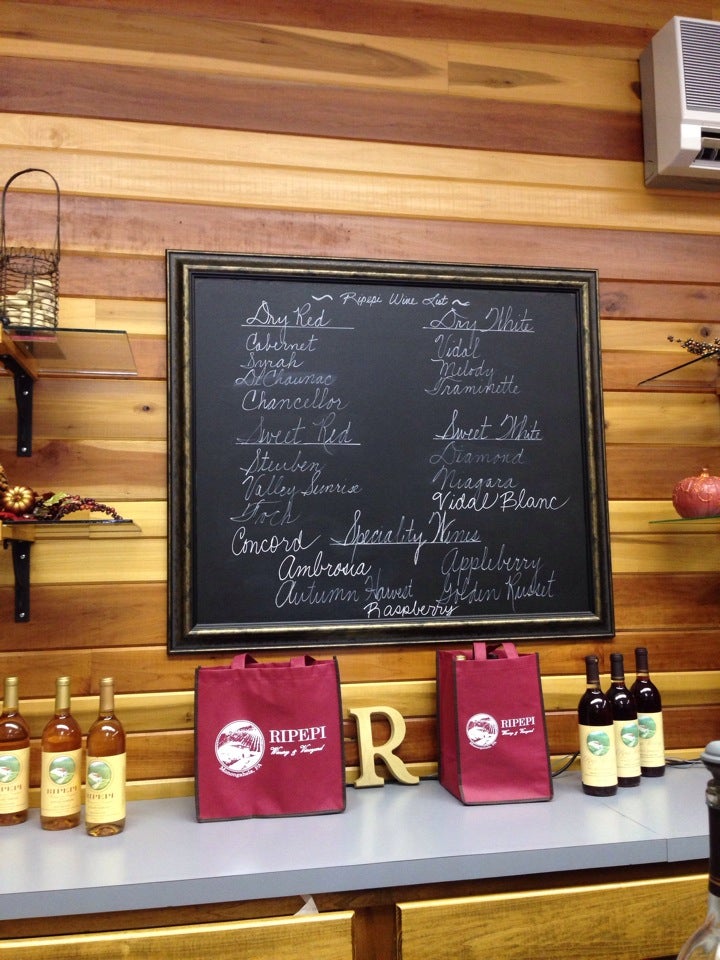 ~ Ripepi Wine List ~
Dry Red
Cabernet
Syrah
DeChaunac
Chancellor
Dry White
Vidal
Melody
Traminette
Sweet Red
Steuben
Valley Sunrise
Foch
Concord
Sweet White
Diamond
Niagara
Vidal Blanc
Speciality Wines
Ambrosia
Appleberry
Autumn Harvest
Golden Russet
Raspberry
RIPEPI
Winery & Vineyard
Monongahela, PA
RIPEPI
Winery & Vineyard
R
RIPEPI
RIPEPI